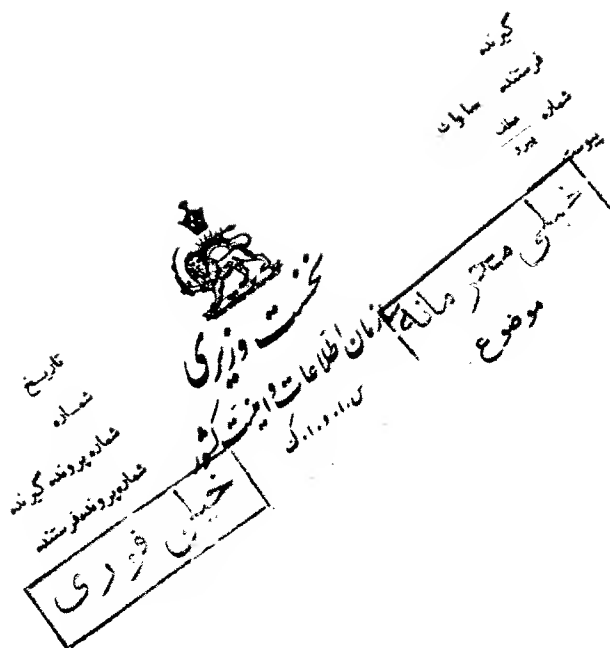 گیرنده
فرستنده ساواک
شماره
عطف
پیرو
پیوست
خیلی محرمانه
موضوع
نخست وزیری
سازمان اطلاعات و امنیت کشور
س.ا.و.ا.ک
تاریخ
شماره
شماره پرونده گیرنده
شماره پرونده فرستنده
خیلی فوری